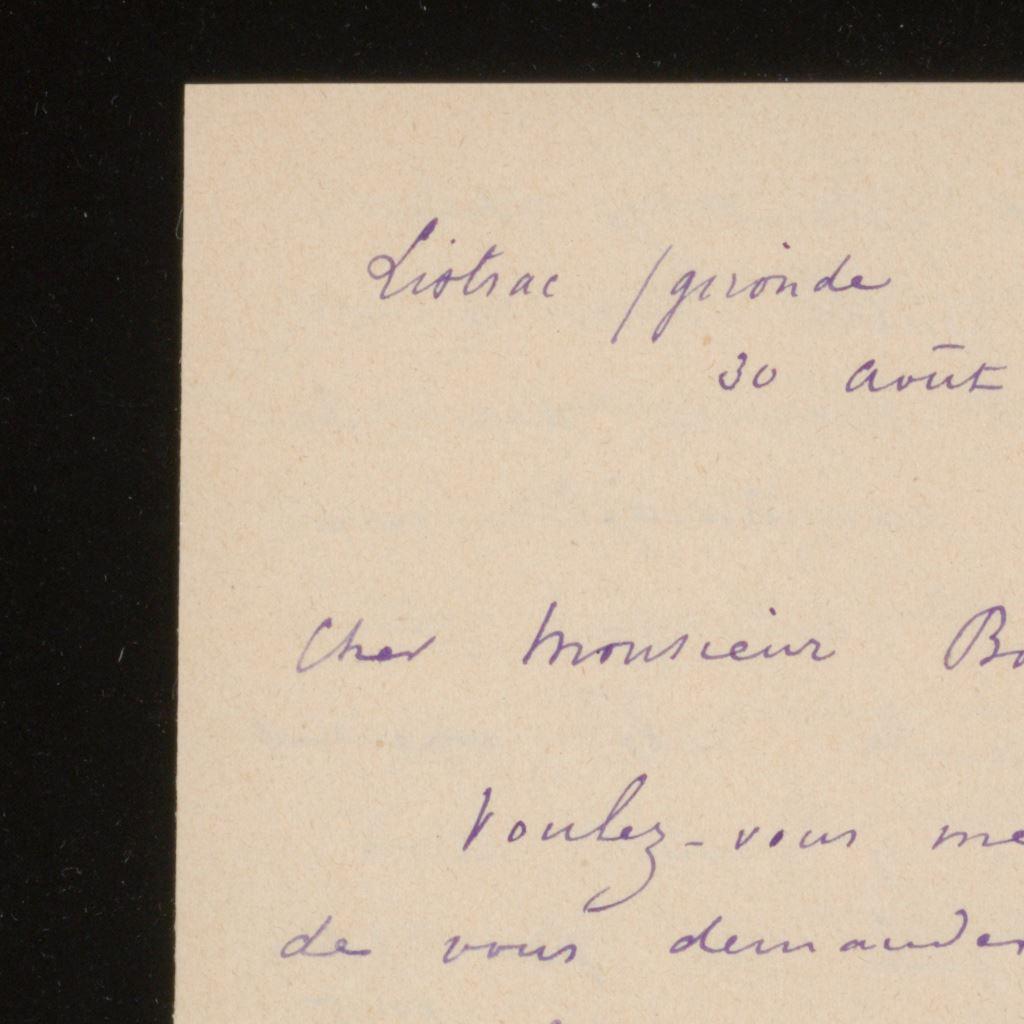 Listrac / gironde
30 août
Cher Monsieur
Voulez-vous me
de vous demander